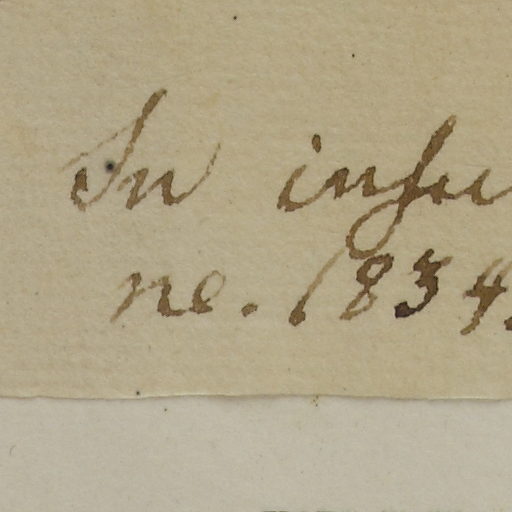 In insu
ne. 1834.